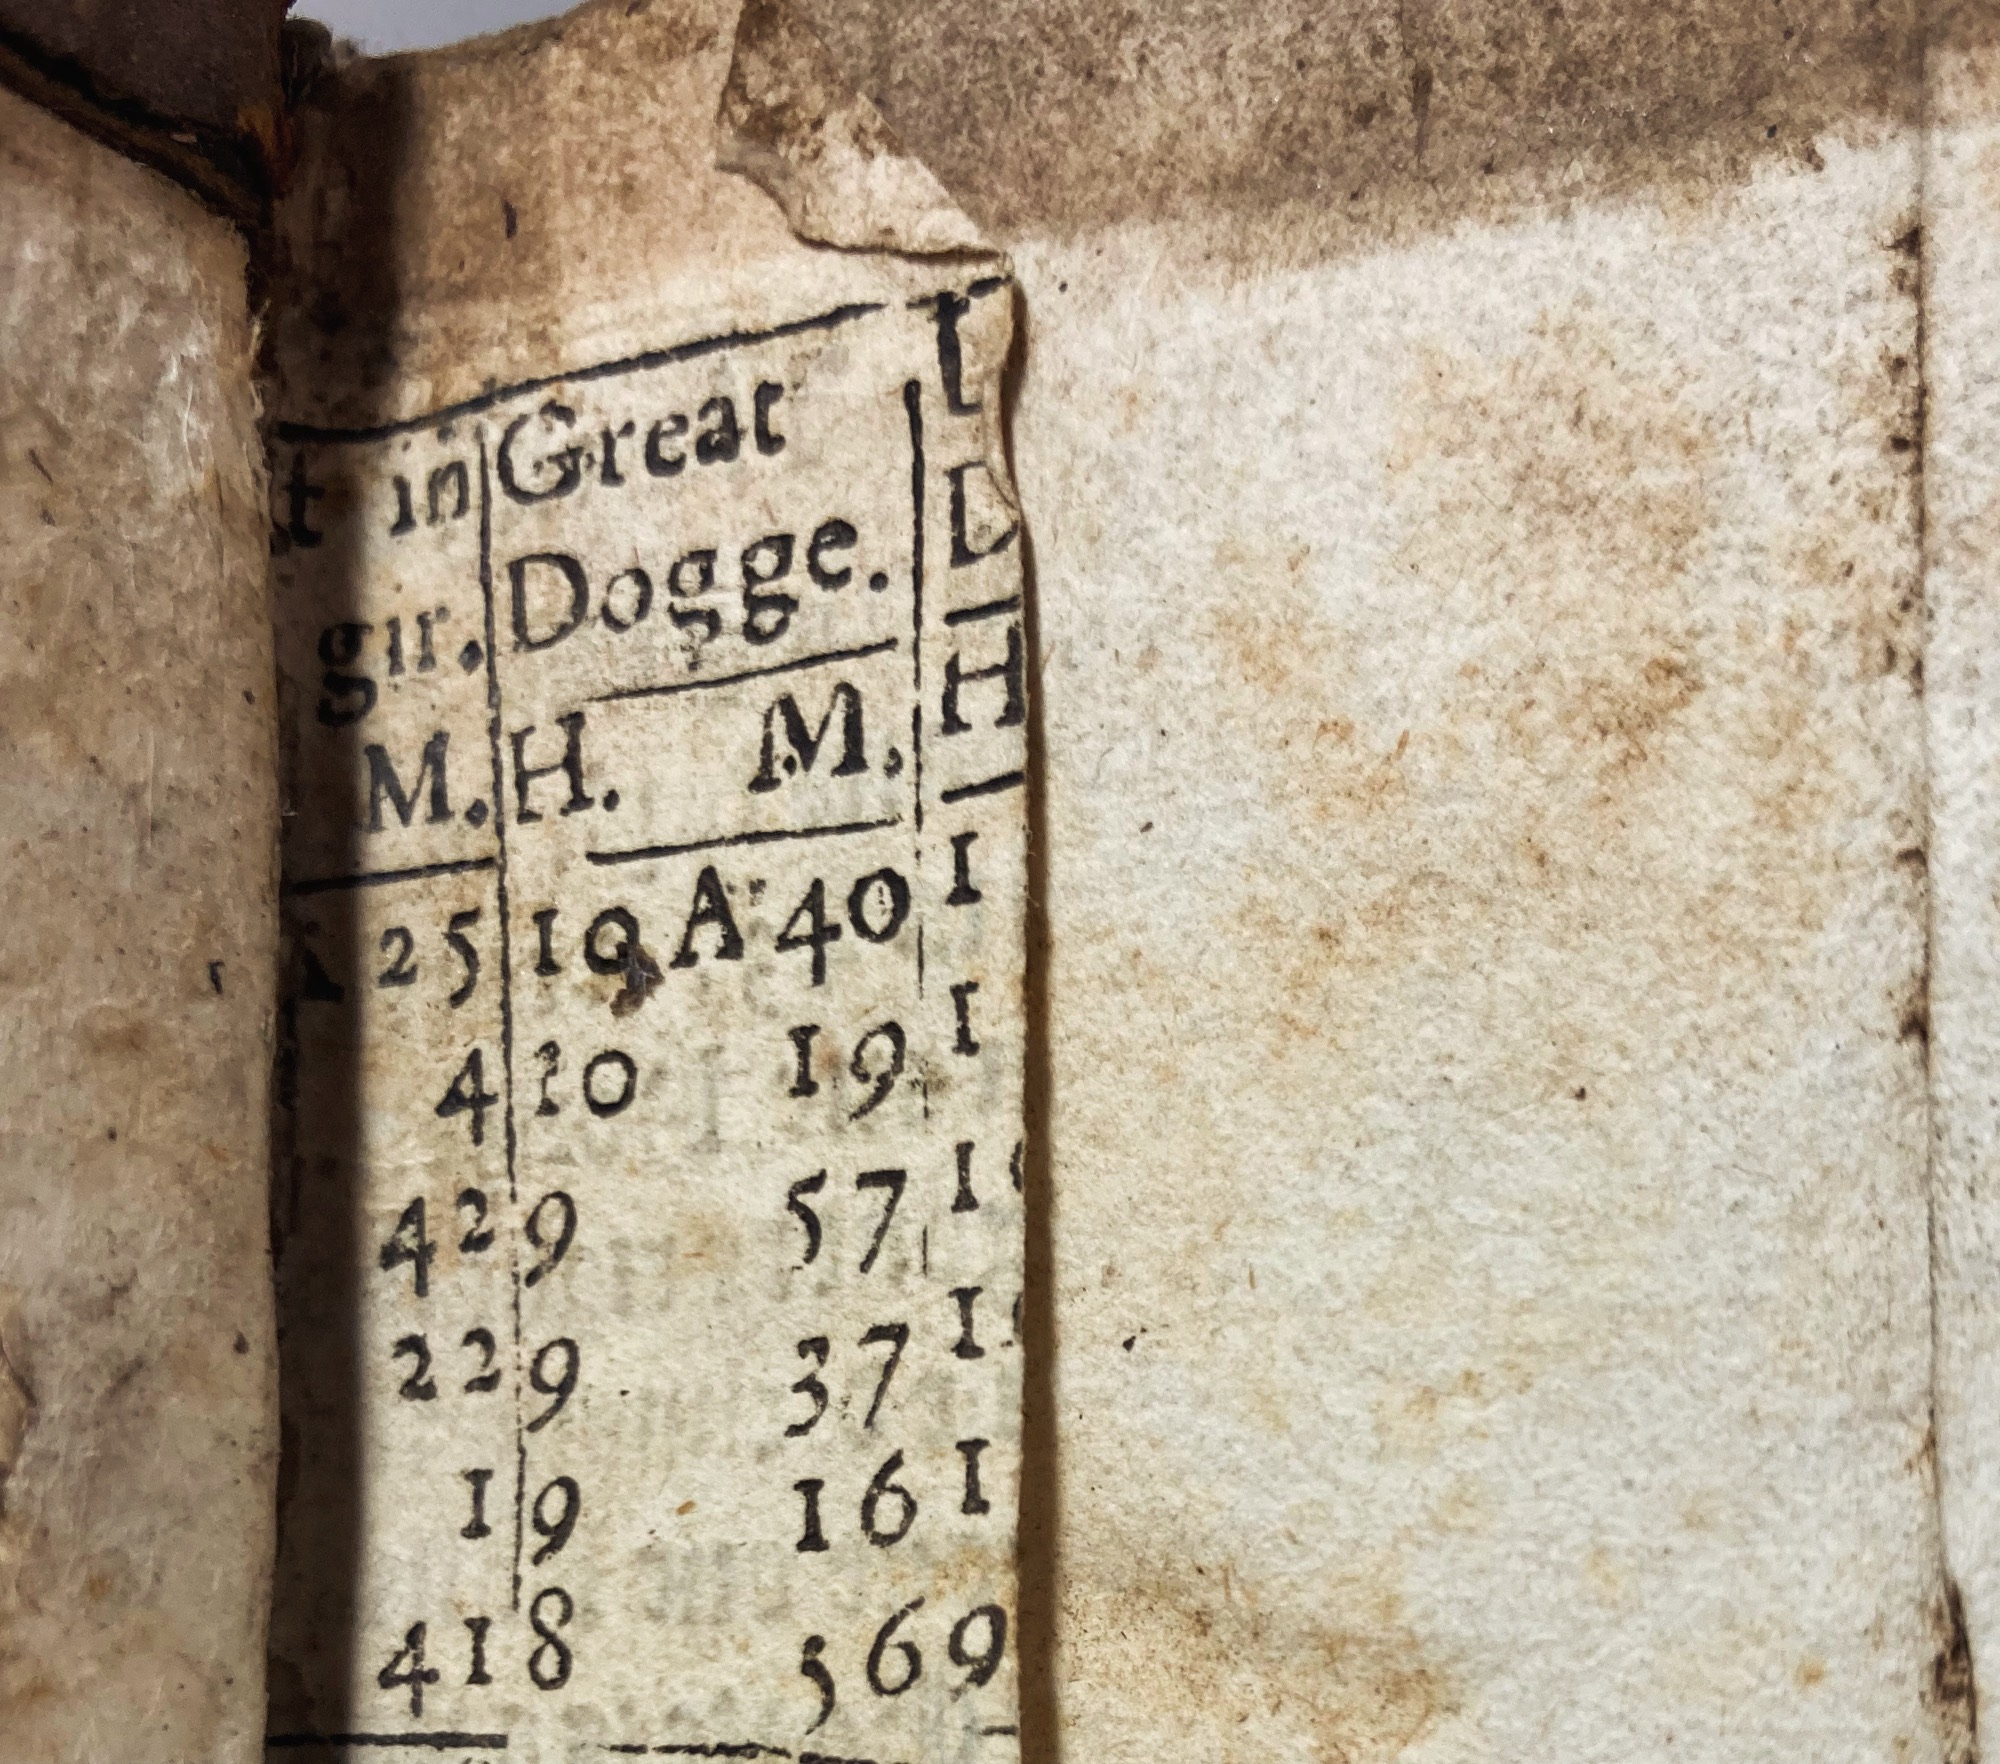 in Great
gir. Dogge.
M. H. M. H
25 10 A 40 1
4 10 19 1
42 9 57 1
22 9 37 1
1 9 16 1
41 8 56 9